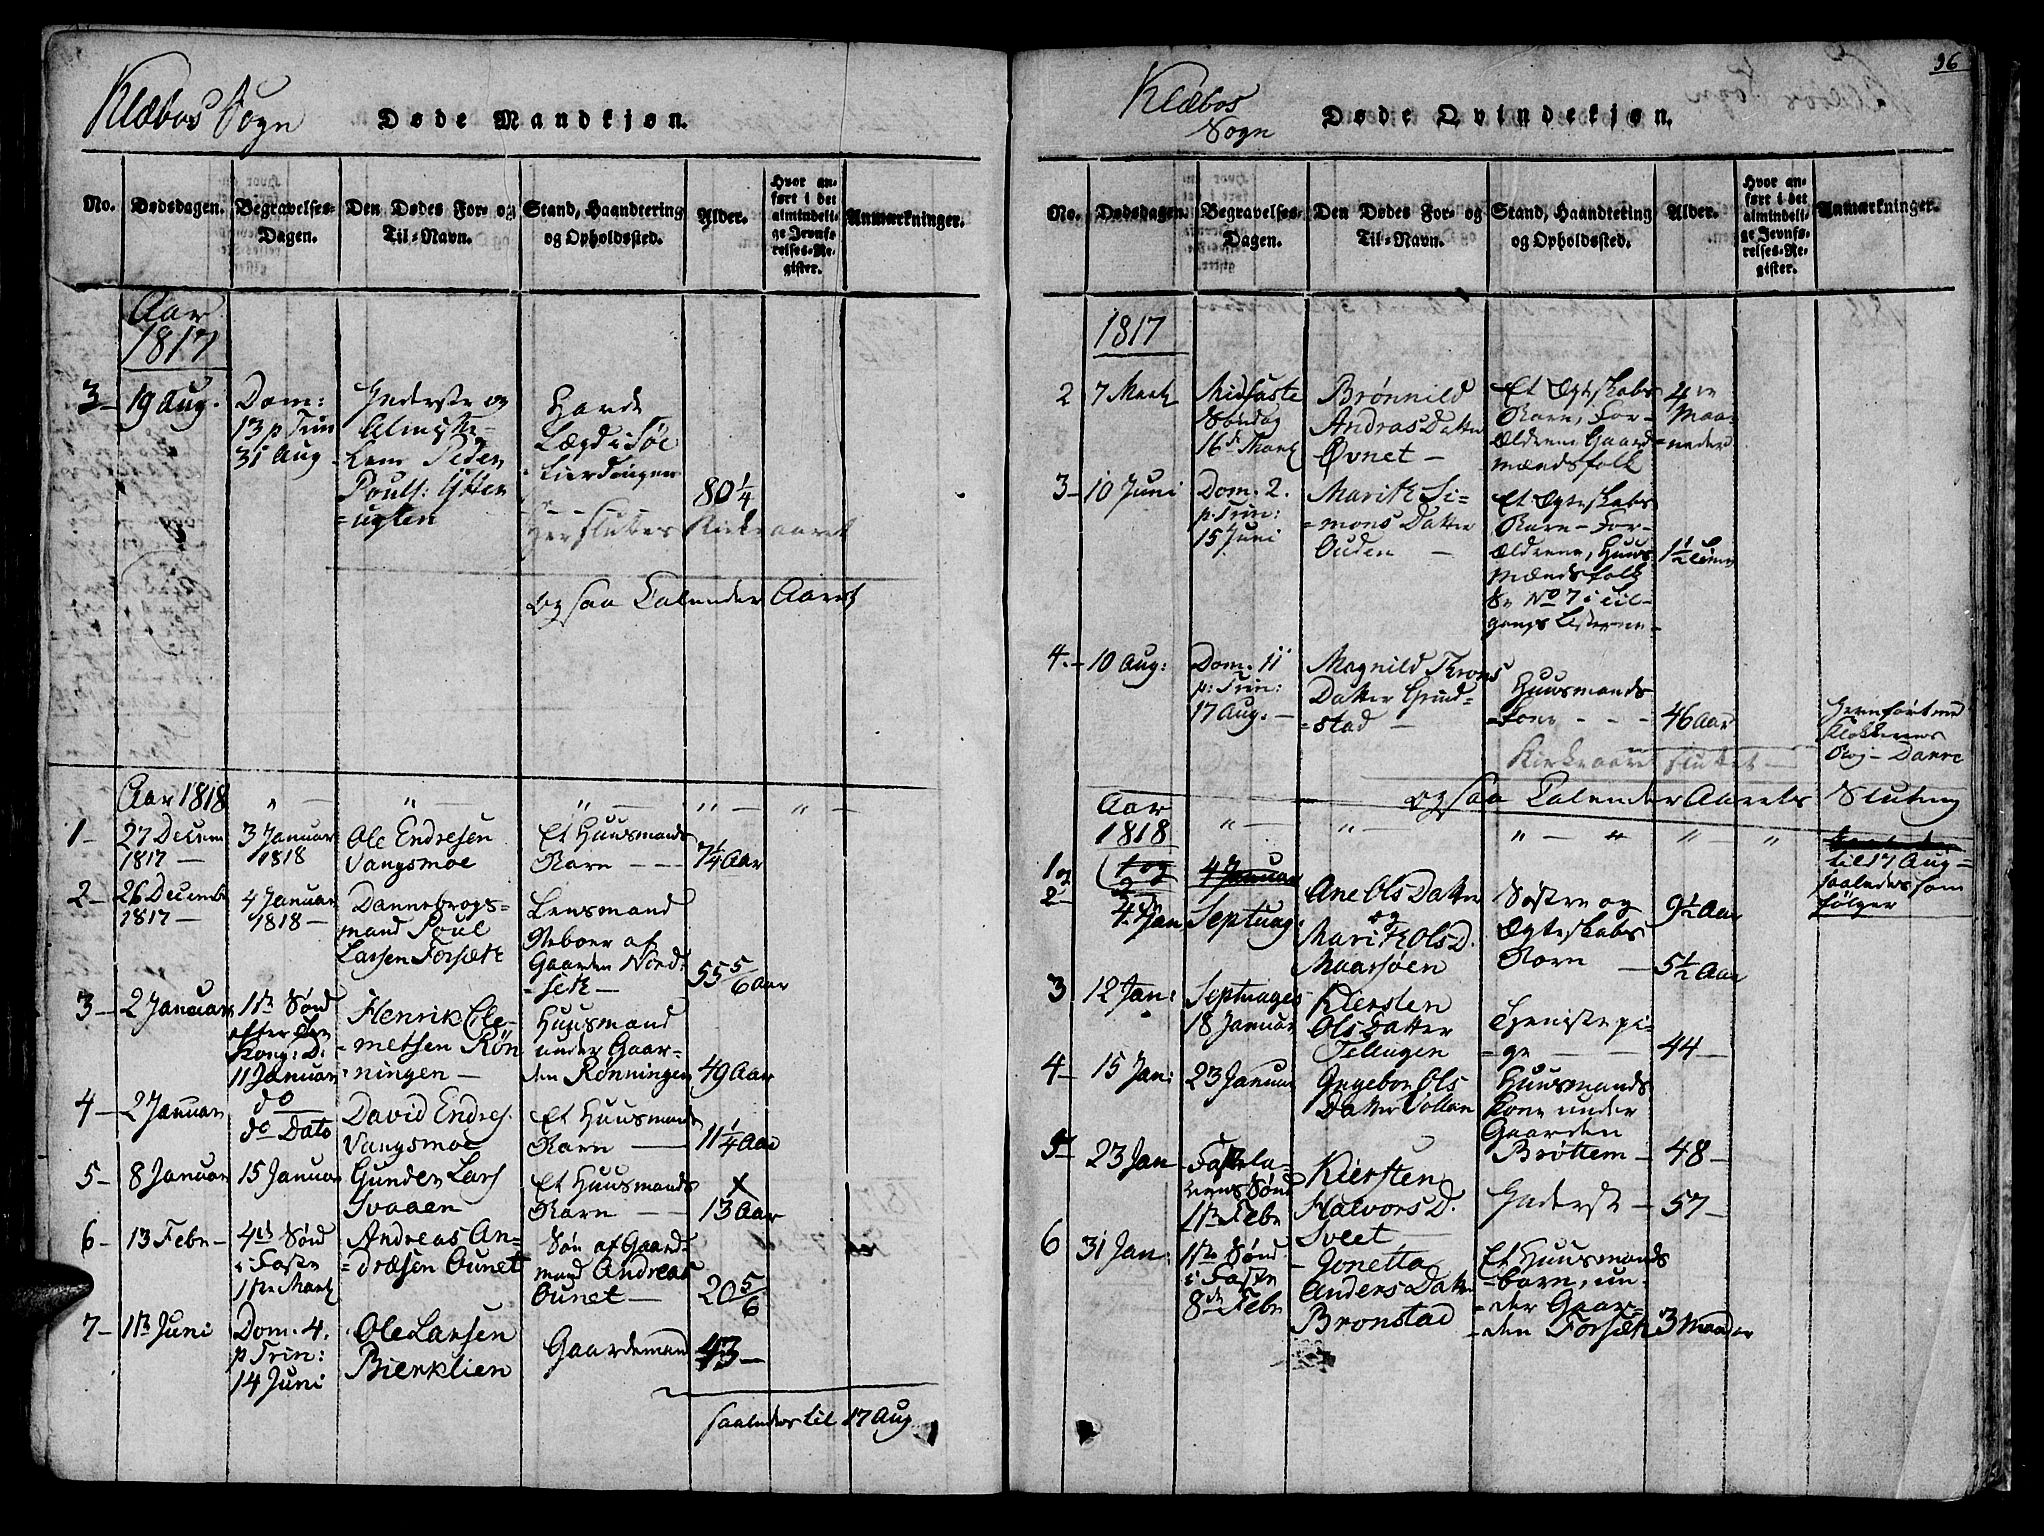 Klæbos Sogn
Døde Mandkjøn.
No.
Dødsdagen.
Begravelses-
Dagen.
Den Dødes For- og
Til-Navn.
Stand, Haandtering
og Opholdssted.
Alder.
Hvor an-
ført i det
almindeli-
ge Jevnfø-
relses-Re-
gister.
Anmærkninger.
Aar
1817
3-
19 Aug.
Dom:
13 p Trin
31 Aug
Inderste og
Almisse-
Lem Peder
Pouls:
80 1/4
Her sluttes Kirkeaaret
og saa Calender Aaret
Aar 1818
1-
27 Decem
1817 -
3 Januar
1818
Ole Endresen
Vangsmoe
Et Huusmands
Barn - -
7 1/4 Aar
2-
26 Decembr
1817 -
4 Januar
1818 -
Dannebrogs-
mand Poul
Larsen Forsæth
Lensmand
Beboer af
Gaarden Nord-
-seth -
55 5/6 Aar
3-
2 Januar
1te Sønd
efter
Kong: D:
11 Januar
Henrik Cle-
-metsen Røn
-ningen -
Huusmand
under Gaar-
den Rønningen
49 Aar
4-
2 Januar
do
do Dato
David Endres.
Vangsmoe
Et Huusmands
Barn -
11 1/4 Aar
5-
8 Januar
15 Januar
Gunder Lars
Svaaen
Et Huusmands
Barn - -
x
13 Aar
6-
13 Febr -
4de Sønd
i Faste
1te Martz
Andreas An-
-dræsen Ounet
Søn af Gaard-
mand Andreas
Ounet -
20 5/6
7-
1te Juni
Dom. 4.
p Trin:
14 Juni
Ole Larsen
Bierklien
Gaardmand
43 -
saaledes til 17 Aug
36
Klæbos
Sogn
Døde Qvindekjøn.
No.
Dødsdagen.
Begravelses-
Dagen.
Den Dødes For- og
Til-Navn.
Stand, Haandtering
og Opholdssted.
Alder.
Hvor an-
ført i det
almindeli-
ge Jevnfø-
relses-Re-
gister.
Anmærkninger.
1817
2
7 Martz
Midfaste
Søndag
16de Martz
Brønnild
Andras Datter
Øvnet -
Et Ægteskabs
Barn, For-
ældrene Gaard-
mændsfolk
4re
Maa-
neder
3-
10 Juni
Dom. 2.
p. Trin:
15 Juni
Marith Si-
-mons Datter
Ouden -
Et Ægteskabs
Barn - For-
ældrene, Huus-
mændsfolk
Se No 7 i Til-
gangs Listerne -
1 1/2
4.-
10 Aug:
Dom. 11
p: Trin:
17 Aug. -
Magnild Throns
Datter Grend-
-stad -
Huusmands
-kone - - -
46 Aar
Jevnført med
Klokkerens
Bog - Darre
Kirkeaaret sluttet -
og saa Calender Aarets Slutning
Aar
1818
1 og
2
4 Januar
4 Jan
Septuag
Ane Ols Datter
og
Marith Ols D.
Maarsøen
Søstre og
Ægteskabs
Børn -
9 1/2 Aar
5 1/2 Aar
til 17 Aug -
saaledes som
følger
3
12 Jan:
Septuages
18 Januar
Kiersten
Ols Datter
Tellugen
Tieniste pi-
-ge -
44 -
4-
15 Jan:
23 Januar
Ingebor Ols
Datter Vollan
Huusmands
kone under
Gaarden
Brøttem -
48 -
5-
23 Jan
Fastela-
vens Sønd
1te Febr
Kiersten
Halvors D.
Sveet -
Inderste -
57 -
6
31 Jan:
1te Sønd
i Faste
8de Febr
Jonetta
Anders Datter
Bronstad
Et Huusmands
-barn, un-
-der Gaar-
-den Forsæth
3 Maader